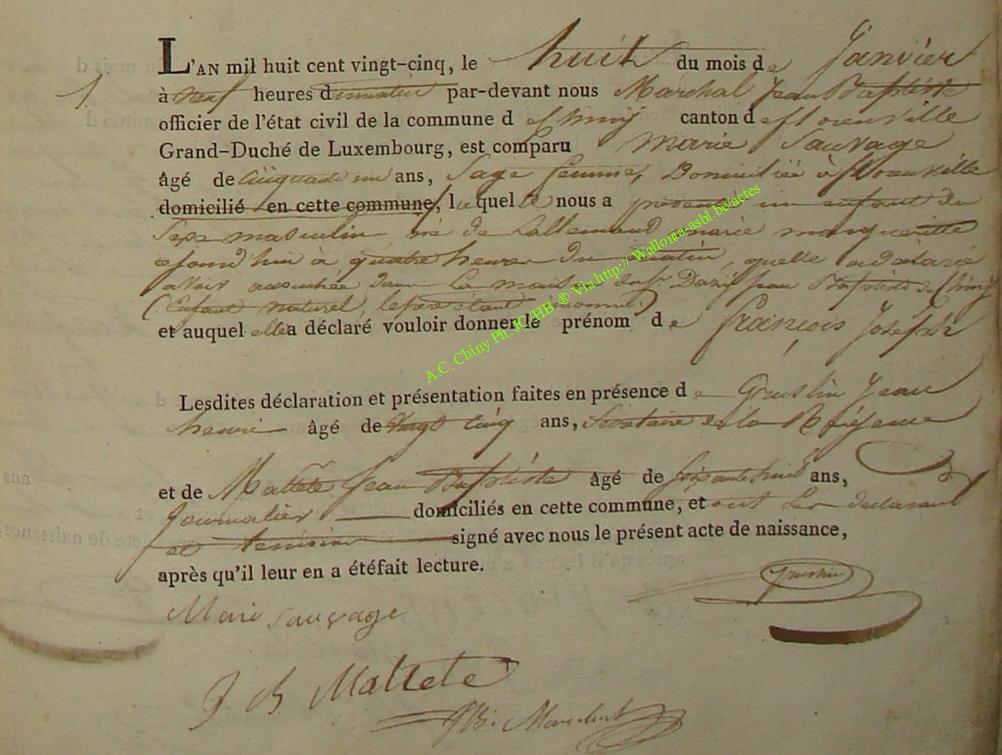 L'AN mil huit cent vingt-cinq, le huit du mois de Janvier
1
à neuf heures du matin par-devant nous Maréchal Jean Baptiste
officier de l'état civil de la commune de Chiny canton de florenville
Grand-Duché de Luxembourg, est comparu Marie Sauvage
âgé de Cinquante un ans, Sage femme, Domiciliée à florenville
domicilié en cette commune, laquelle nous a présenté un enfant du
Sexe masculin né de Lallemand marie marguerite
à quatre heures du matin, quelle a déclaré
avoir accouchée dans La maison Jean Baptiste de Chiny
(Enfant naturel, le père étant inconnu)
et auquel elle a déclaré vouloir donner le prénom de françois Joseph
A.C. Chiny Ph. JC/HB ® Via http:// Wallonia-asbl.be/actes
Lesdites déclaration et présentation faites en présence de Jean
henri âgé de Vingt Cinq ans, Secrétaire de la Régence
et de Maltête Jean Baptiste âgé de Soixante huit ans,
Journalier domiciliés en cette commune, et ont Les declarant
et temoins signé avec nous le présent acte de naissance,
après qu'il leur en a étéfait lecture.
Marie Sauvage
J B Maltete
JB: Marechal